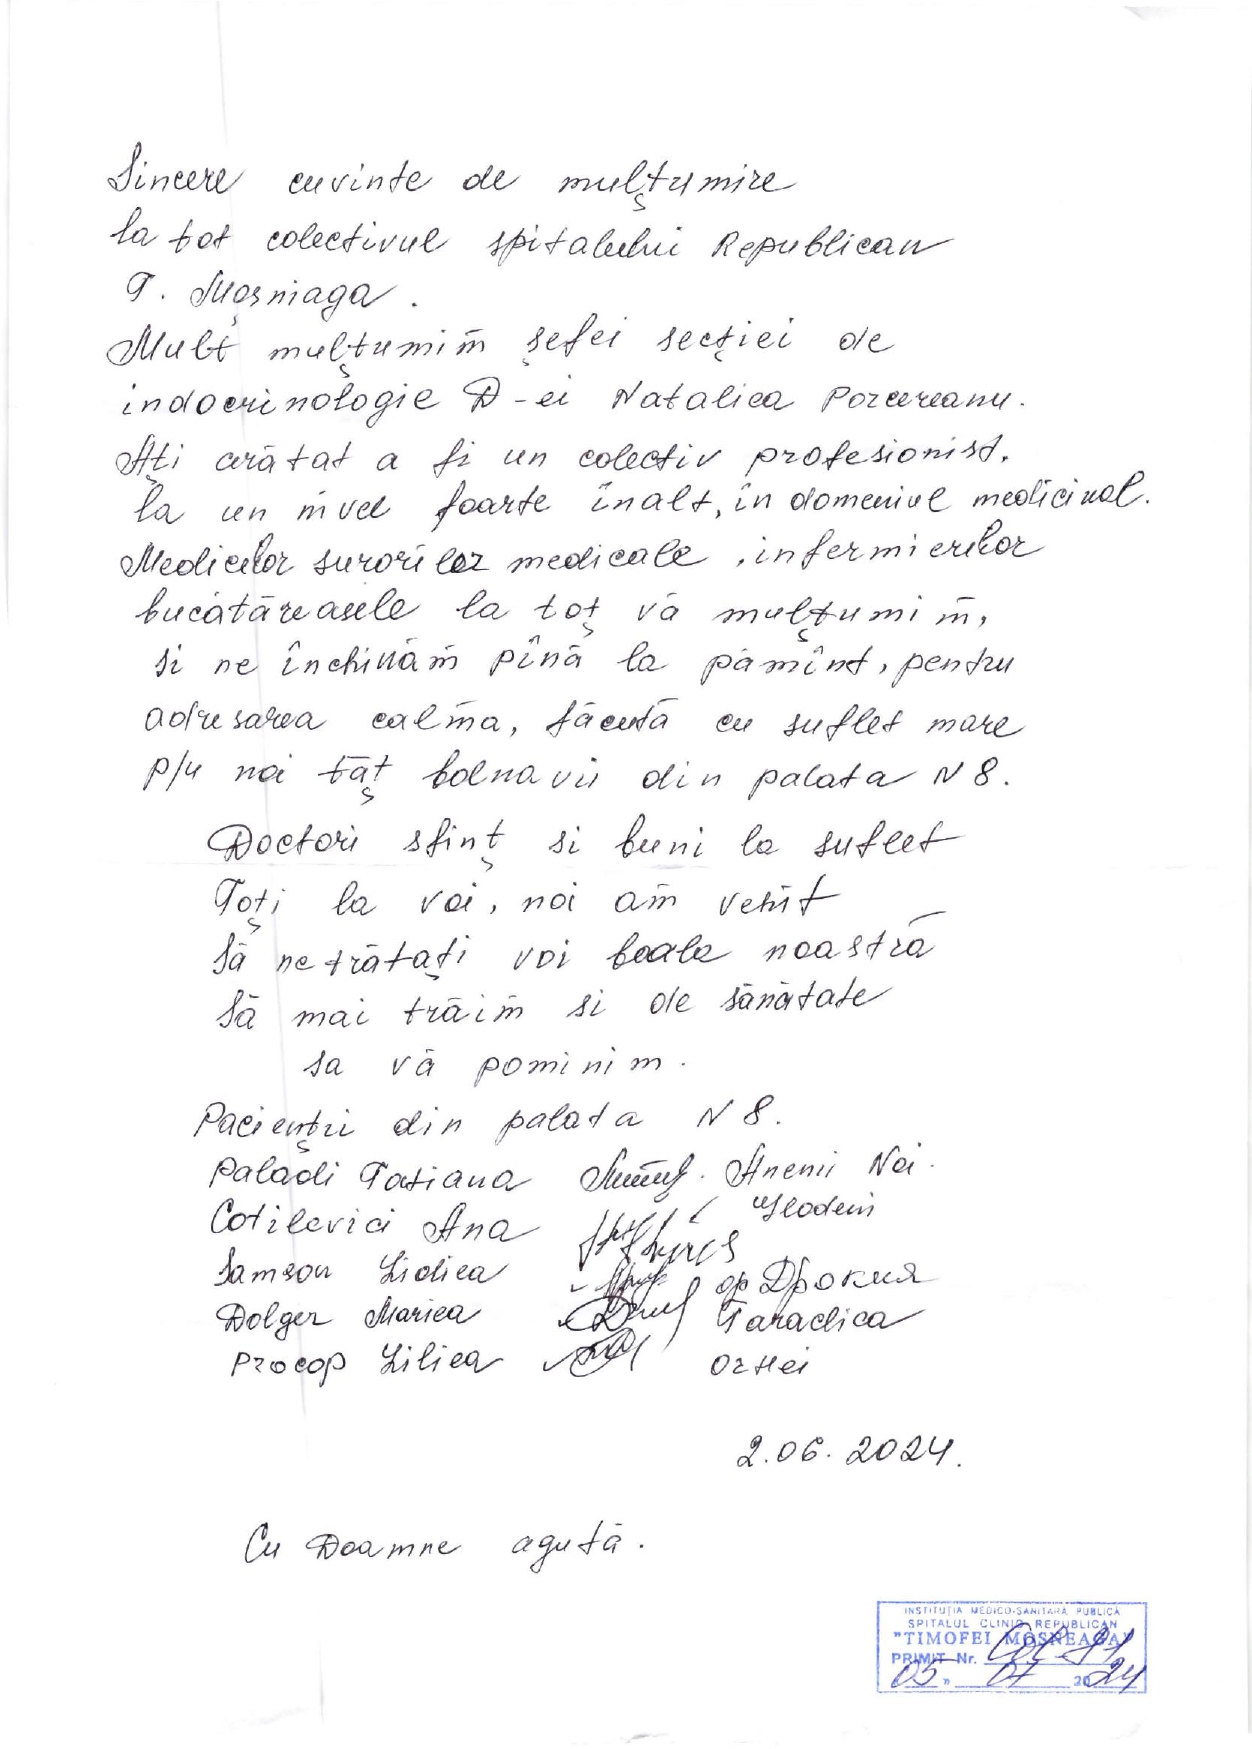 Sincere cuvinte de mulțumire
la tot colectivul spitalului Republican
T. Moșniaga.
Mult mulțumim șefei secției de
indocrinologie D-ei Natalica Porcereanu.
Ați arătat a fi un colectiv profesionist.
la un nivel foarte înalt, în domeniul medicinal.
Medicilor surorilor medicale, infermierilor
bucătăreasele la toț vă mulțumim,
si ne închinăm pînă la pămînt, pentru
adresarea calmă, făcută cu suflet mare
p/u noi tăț bolnavii din palata N 8.
Doctori sfinț si buni la suflet
Toți la voi, noi am venit
Să ne trătați voi boala noastră
Să mai trăim si de sănătate
sa vă pominim.
Pacienții din palata N 8.
Paladi Tatiana Anenii Noi.
Cotilevici Ana Glodeni
Samson Lidiea ор Дрокия
Dolger Mariea Taraclica
Procop Liliea Orhei
2.06.2024.
Cu Doamne agută.
INSTITUȚIA MEDICO-SANITARĂ PUBLICĂ
SPITALUL CLINIC REPUBLICAN
"TIMOFEI MOȘNEAGA"
PRIMIT Nr.
05 " 07 2024